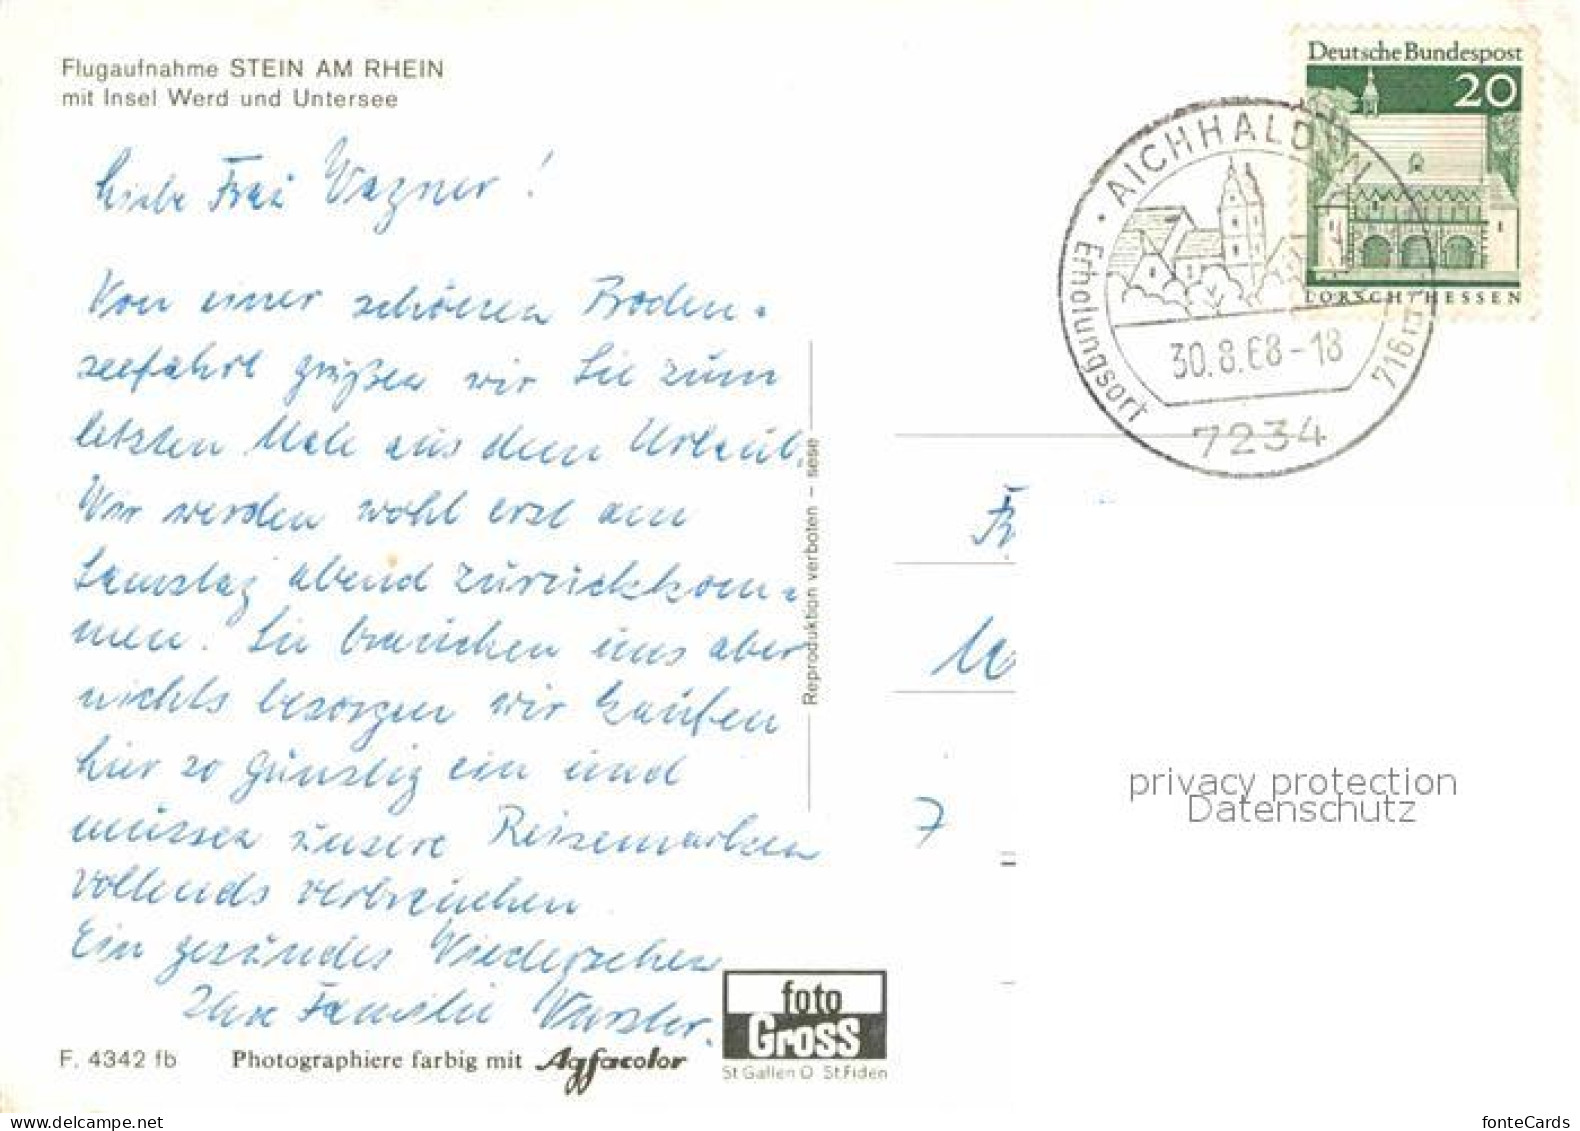 Flugaufnahme STEIN AM RHEIN
mit Insel Werd und Untersee
Liebe Frau Wagner!
Von einer schönen Boden-
seefahrt grüßen wir Sie zum
letzten Male aus dem Urlaub.
Wir werden wohl erst am
Samstag abend zurückkom-
men. Sie brauchen uns aber
nichts besorgen wir kaufen
hier so günstig ein und
müssen unsere Reisemarken
vollends verbrauchen
Ein gesundes Wiedersehen
Ihre Familie
F. 4342 fb
Photographiere farbig mit Agfacolor
foto
Gross
St Gallen O St. Fiden
Reproduktion verboten – sese
Deutsche Bundespost
20
LORSCH/HESSEN
AICHHALDEN
Erholungsort
716 m
30.8.68-18
7234
7
privacy protection
Datenschutz
fonteCards